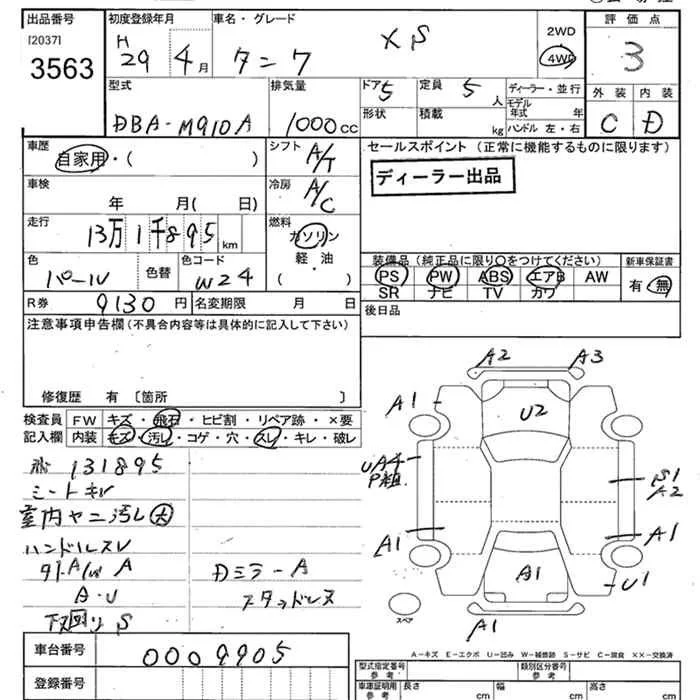 出品番号 初度登録年月 車名・グレード 評価点
[2037]
3563
H 29 年 4月 タニワ XS 2WD 4WD 3
型式 排気量 ドア 5 定員 5 人 ディーラー・並行 外装 内装
DBA-M910A 1000cc 形状 積載 kg モデル年式 年 C D
ハンドル 左・右
車歴 シフト A/T セールスポイント (正常に機能するものに限ります)
自家用・( ) ディーラー出品
車検 冷房 A/C
年 月( 日)
走行 燃料
13万1千895km ガソリン
軽・油
( )
色 パール 色替 色コード W24
装備品 (純正品に限り〇をつけてください) 新車保証書
PS PW ABS エアB AW 有・無
SR ナビ TV カワ
R券 9130円 名変期限 月 日 後日品
注意事項申告欄 (不具合内容等は具体的に記入して下さい)
修復歴 有 [箇所
検査員 FW キズ・飛石・ヒビ割・リペア跡・×要
記入欄 内装 キズ・汚レ・コゲ・穴・スレ・キレ・破レ
131895
シートキレ
室内ヤニ汚レ大
ハンドルスレ
外A/W A Dミラー A
A・U スタッドレス
下回りS
A2 A3
A1 U2
UA4 P組 S1 A2
A1 A1
A1 U1
A1
スペア
A-キズ E-エクボ U-凹み W-補修跡 S-サビ C-腐食 ××-交換済
車台番号 0009905
登録番号
型式指定番号 参考 類別区分番号 参考
車庫証明用 参考 長さ cm 幅 cm 高さ cm